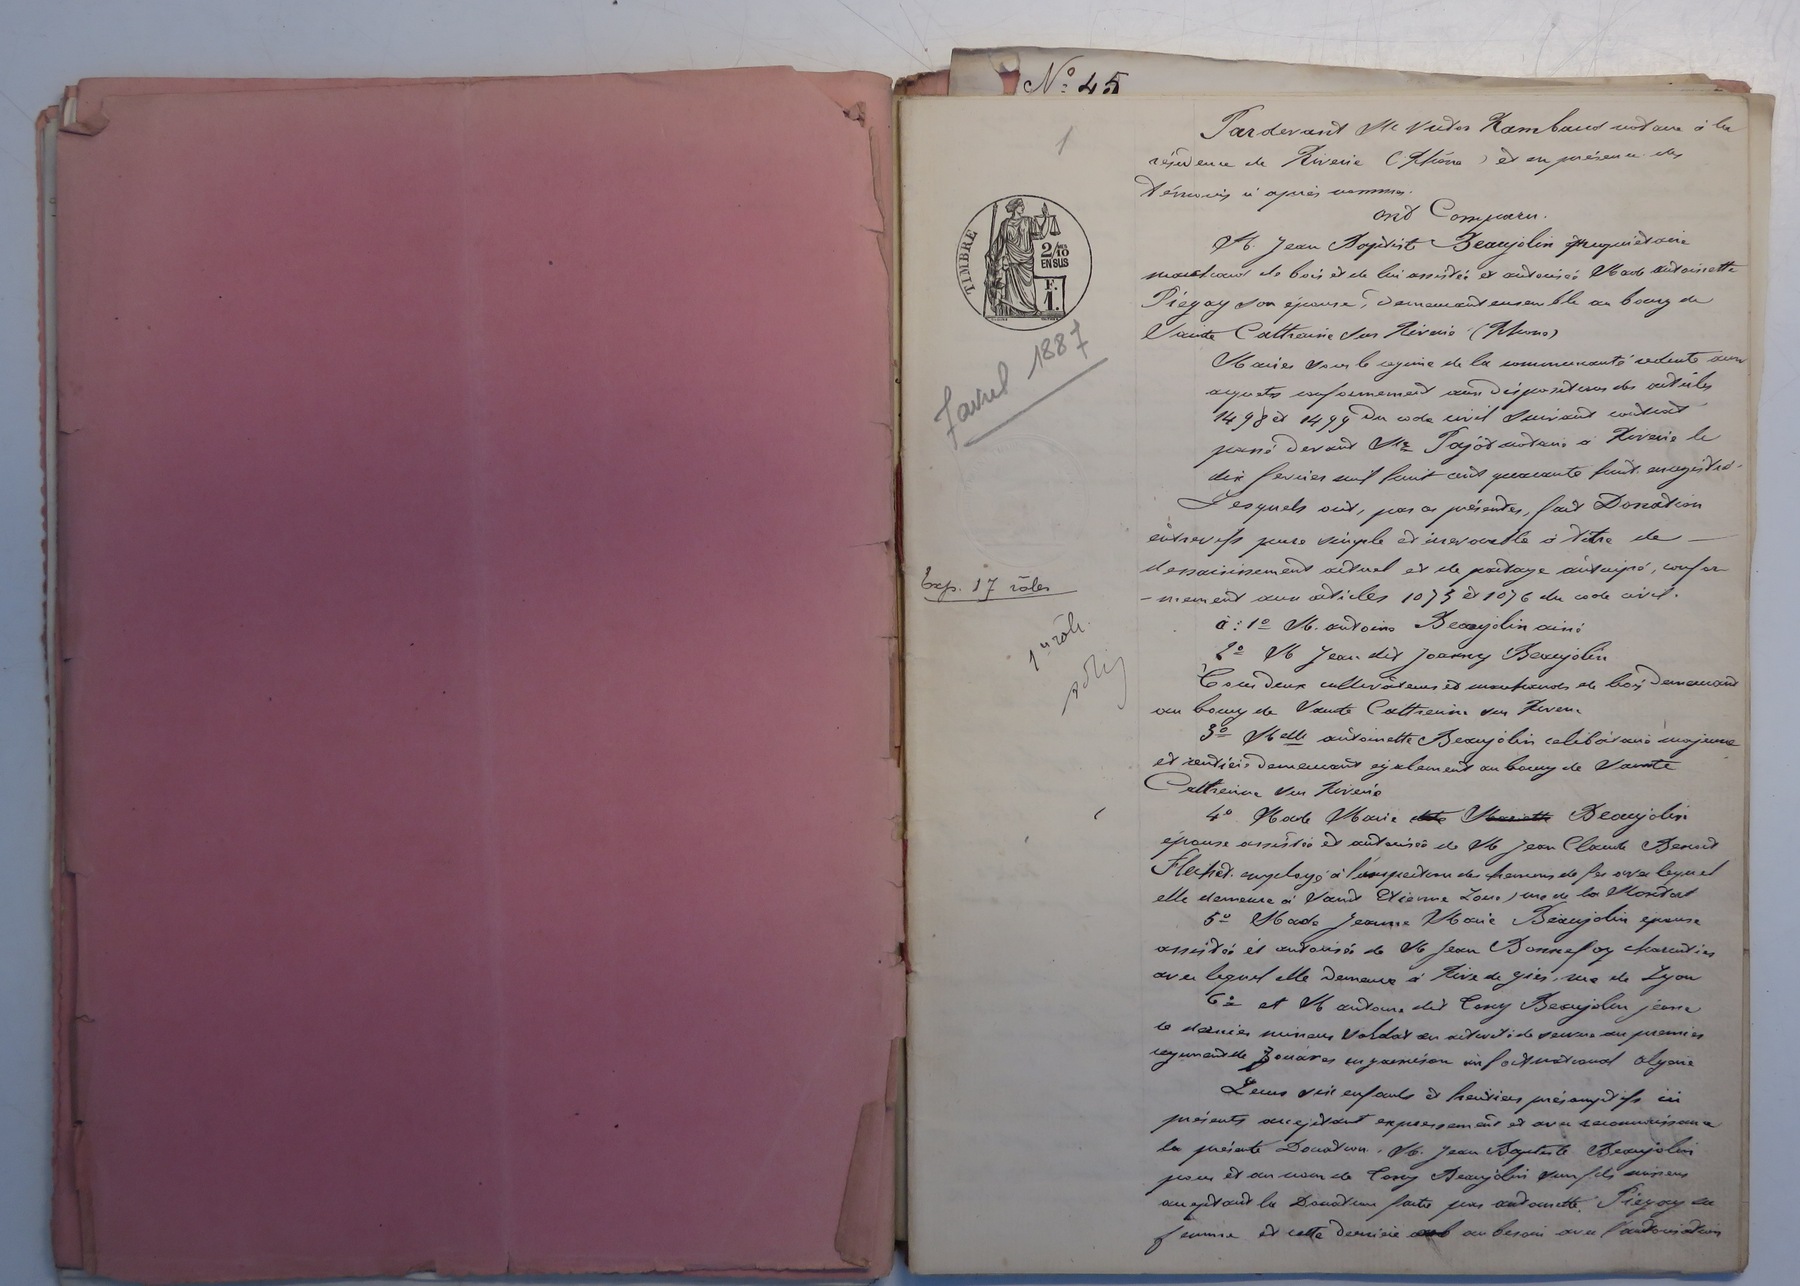 No 45
1
Pardevant Me Victor Rambaud notaire à la
résidence de Riverie (Rhône) et en présence des
témoins ci après nommés.
ont Comparu.
TIMBRE
2/10
EN SUS
F.
1.
M. Jean Baptiste Beaujolin propriétaire
marchand de bois et de lui assistée et autorisée Made Antoinette
Piégay son épouse, demeurant ensemble au bourg de
Sainte Catherine sur Riverie (Rhône)
7 avril 1887
Mariés sous le régime de la communauté réduite aux
acquets conformément aux dispositions des articles
1498 et 1499 du code civil suivant contrat
passé devant Me Pajot notaire à Riverie le
dix février mil huit cent quarante huit enregistré.
Lesquels ont, par ces présentes, fait Donation
entrevifs pure simple et irrévocable à titre de
dessaisissement actuel et de partage anticipé, confor
-mement aux articles 1075 et 1076 du code civil.
Exp. 17 rôles
1er rôle
à : 1o M. antoine Beaujolin ainé
2o M Jean dit Joanny Beaujolin
Tous deux cultivateurs et marchands de bois demeurant
au bourg de Sainte Catherine sur Riverie
3o Melle antoinette Beaujolin célibataire majeure
et rentière demeurant également au bourg de Sainte
Catherine sur Riverie
4o Made Marie dite Mariette Beaujolin
épouse assistée et autorisée de M Jean Claude Benoit
Flechet employé à l'inspection des chemins de fer avec lequel
elle demeure à Saint Etienne Loire, rue de la Montat
5o Made Jeanne Marie Beaujolin épouse
assistée et autorisée de M Jean Bonnefoy charcutier
avec lequel elle demeure à Rive de gier, rue de Lyon
6o et M antoine dit Tony Beaujolin jeune
ce dernier mineur soldat en activité de service au premier
regiment de Zouaves en garnison au fort national algérie
Leurs six enfants et héritiers présomptifs ici
présents acceptant expressément et avec reconnaissance
la présente Donation, M. Jean Baptiste Beaujolin
pour et au nom de Tony Beaujolin son fils mineur
acceptant la Donation faite par antoinette Piégay sa
femme et cette dernière au besoin avec l'autorisation